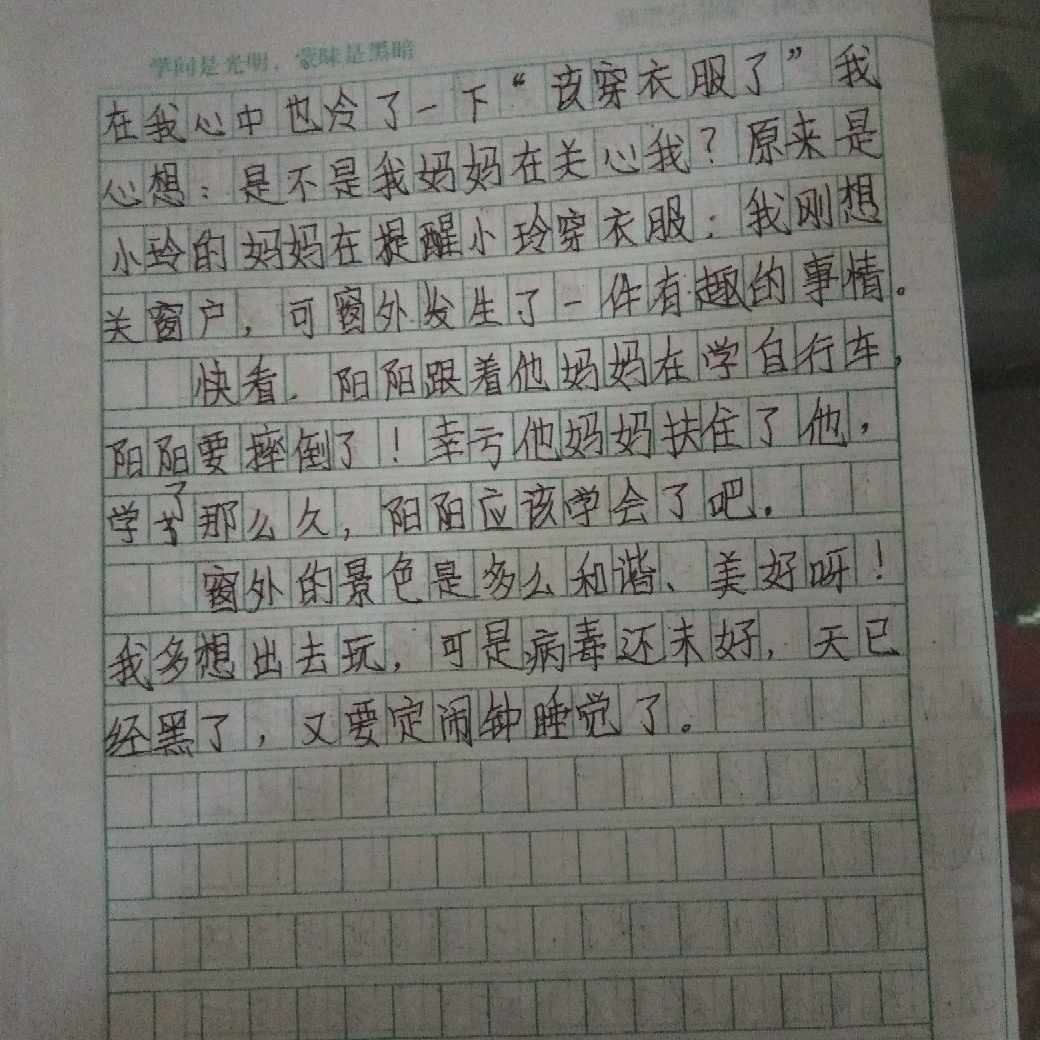 学问是光明，蒙昧是黑暗
在我心中也冷了一下“该穿衣服了”我
心想：是不是我妈妈在关心我？原来是
小玲的妈妈在提醒小玲穿衣服；我刚想
关窗户，可窗外发生了一件有趣的事情。
快看．阳阳跟着他妈妈在学自行车，
阳阳要摔倒了！幸亏他妈妈扶住了他，
学了那么久，阳阳应该学会了吧．
窗外的景色是多么和谐、美好呀！
我多想出去玩，可是病毒还未好，天已
经黑了，又要定闹钟睡觉了。